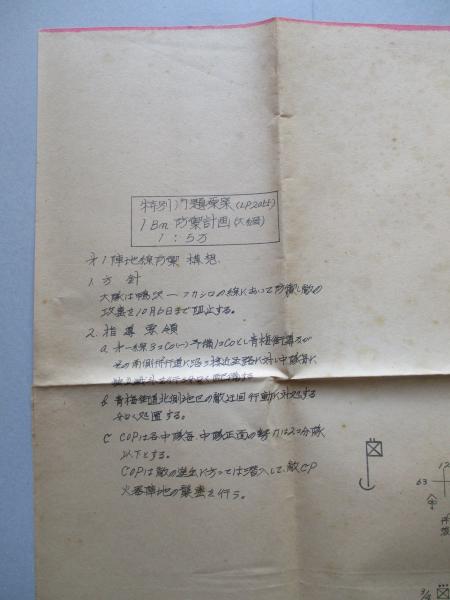 特別問題案(LP2055)
1Bn 防禦計画(大綱)
1:5万
才1陣地線防禦 構想
1. 方針
大隊は鴨沢ーフカシロの線において防禦し敵の
攻撃を10月6日まで阻止する。
2. 指導要領
a 才一線3コCo(-)予備1コCoとし青梅街道及び
その南側併行道に沿う接近経路に対し中隊毎に
b 青梅街道北側地区の敵迂回行動に対処する
如く処置する。
C COPは各中隊毎 中隊正面の勢力は2コ分隊
以下とする。
COPは敵の進出に方っては潜入して、敵CP
火器陣地の襲撃を行う。
63
12
3/4